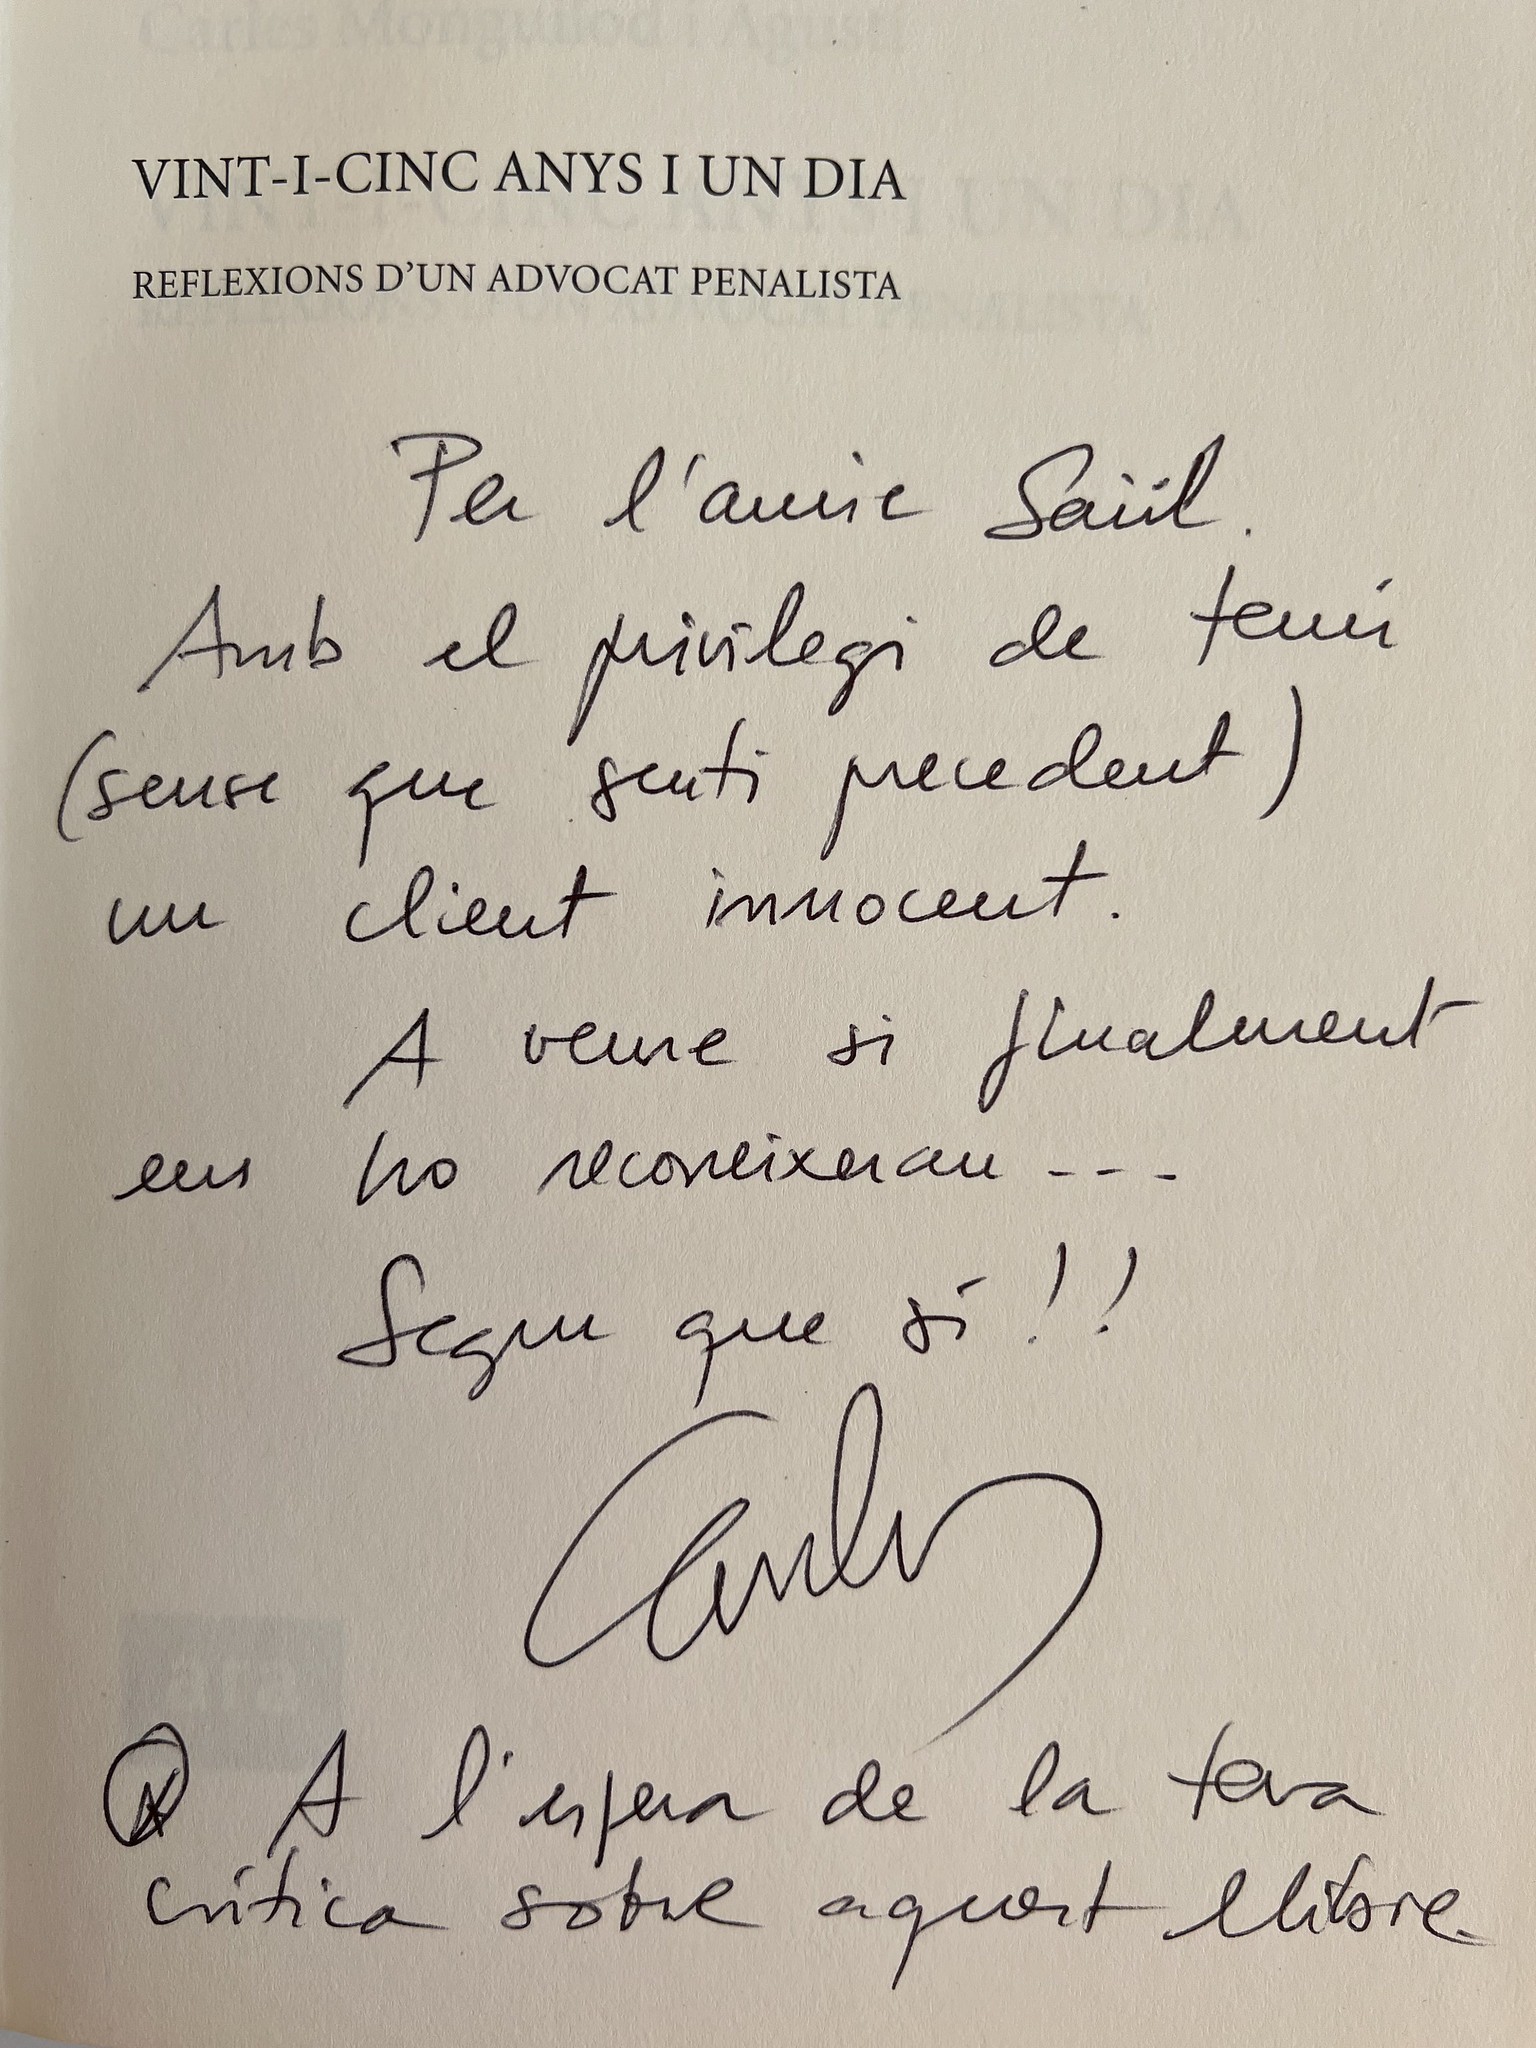 Carles Monguilod i Agustí
VINT-I-CINC ANYS I UN DIA
REFLEXIONS D'UN ADVOCAT PENALISTA
Per l'amic Saül.
Amb el privilegi de tenir
(sense que senti precedent)
un client innocent.
A veure si finalment
ens ho reconeixeran ---
Segur que sí!!
Carles
A l'espera de la teva
crítica sobre aquest llibre.